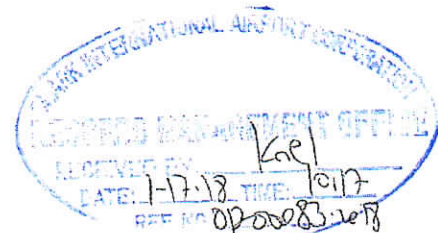 CLARK INTERNATIONAL AIRPORT CORPORATION
RECORDS MANAGEMENT OFFICE
RECEIVED BY
DATE: 1-17-18 TIME: 1017
REF NO